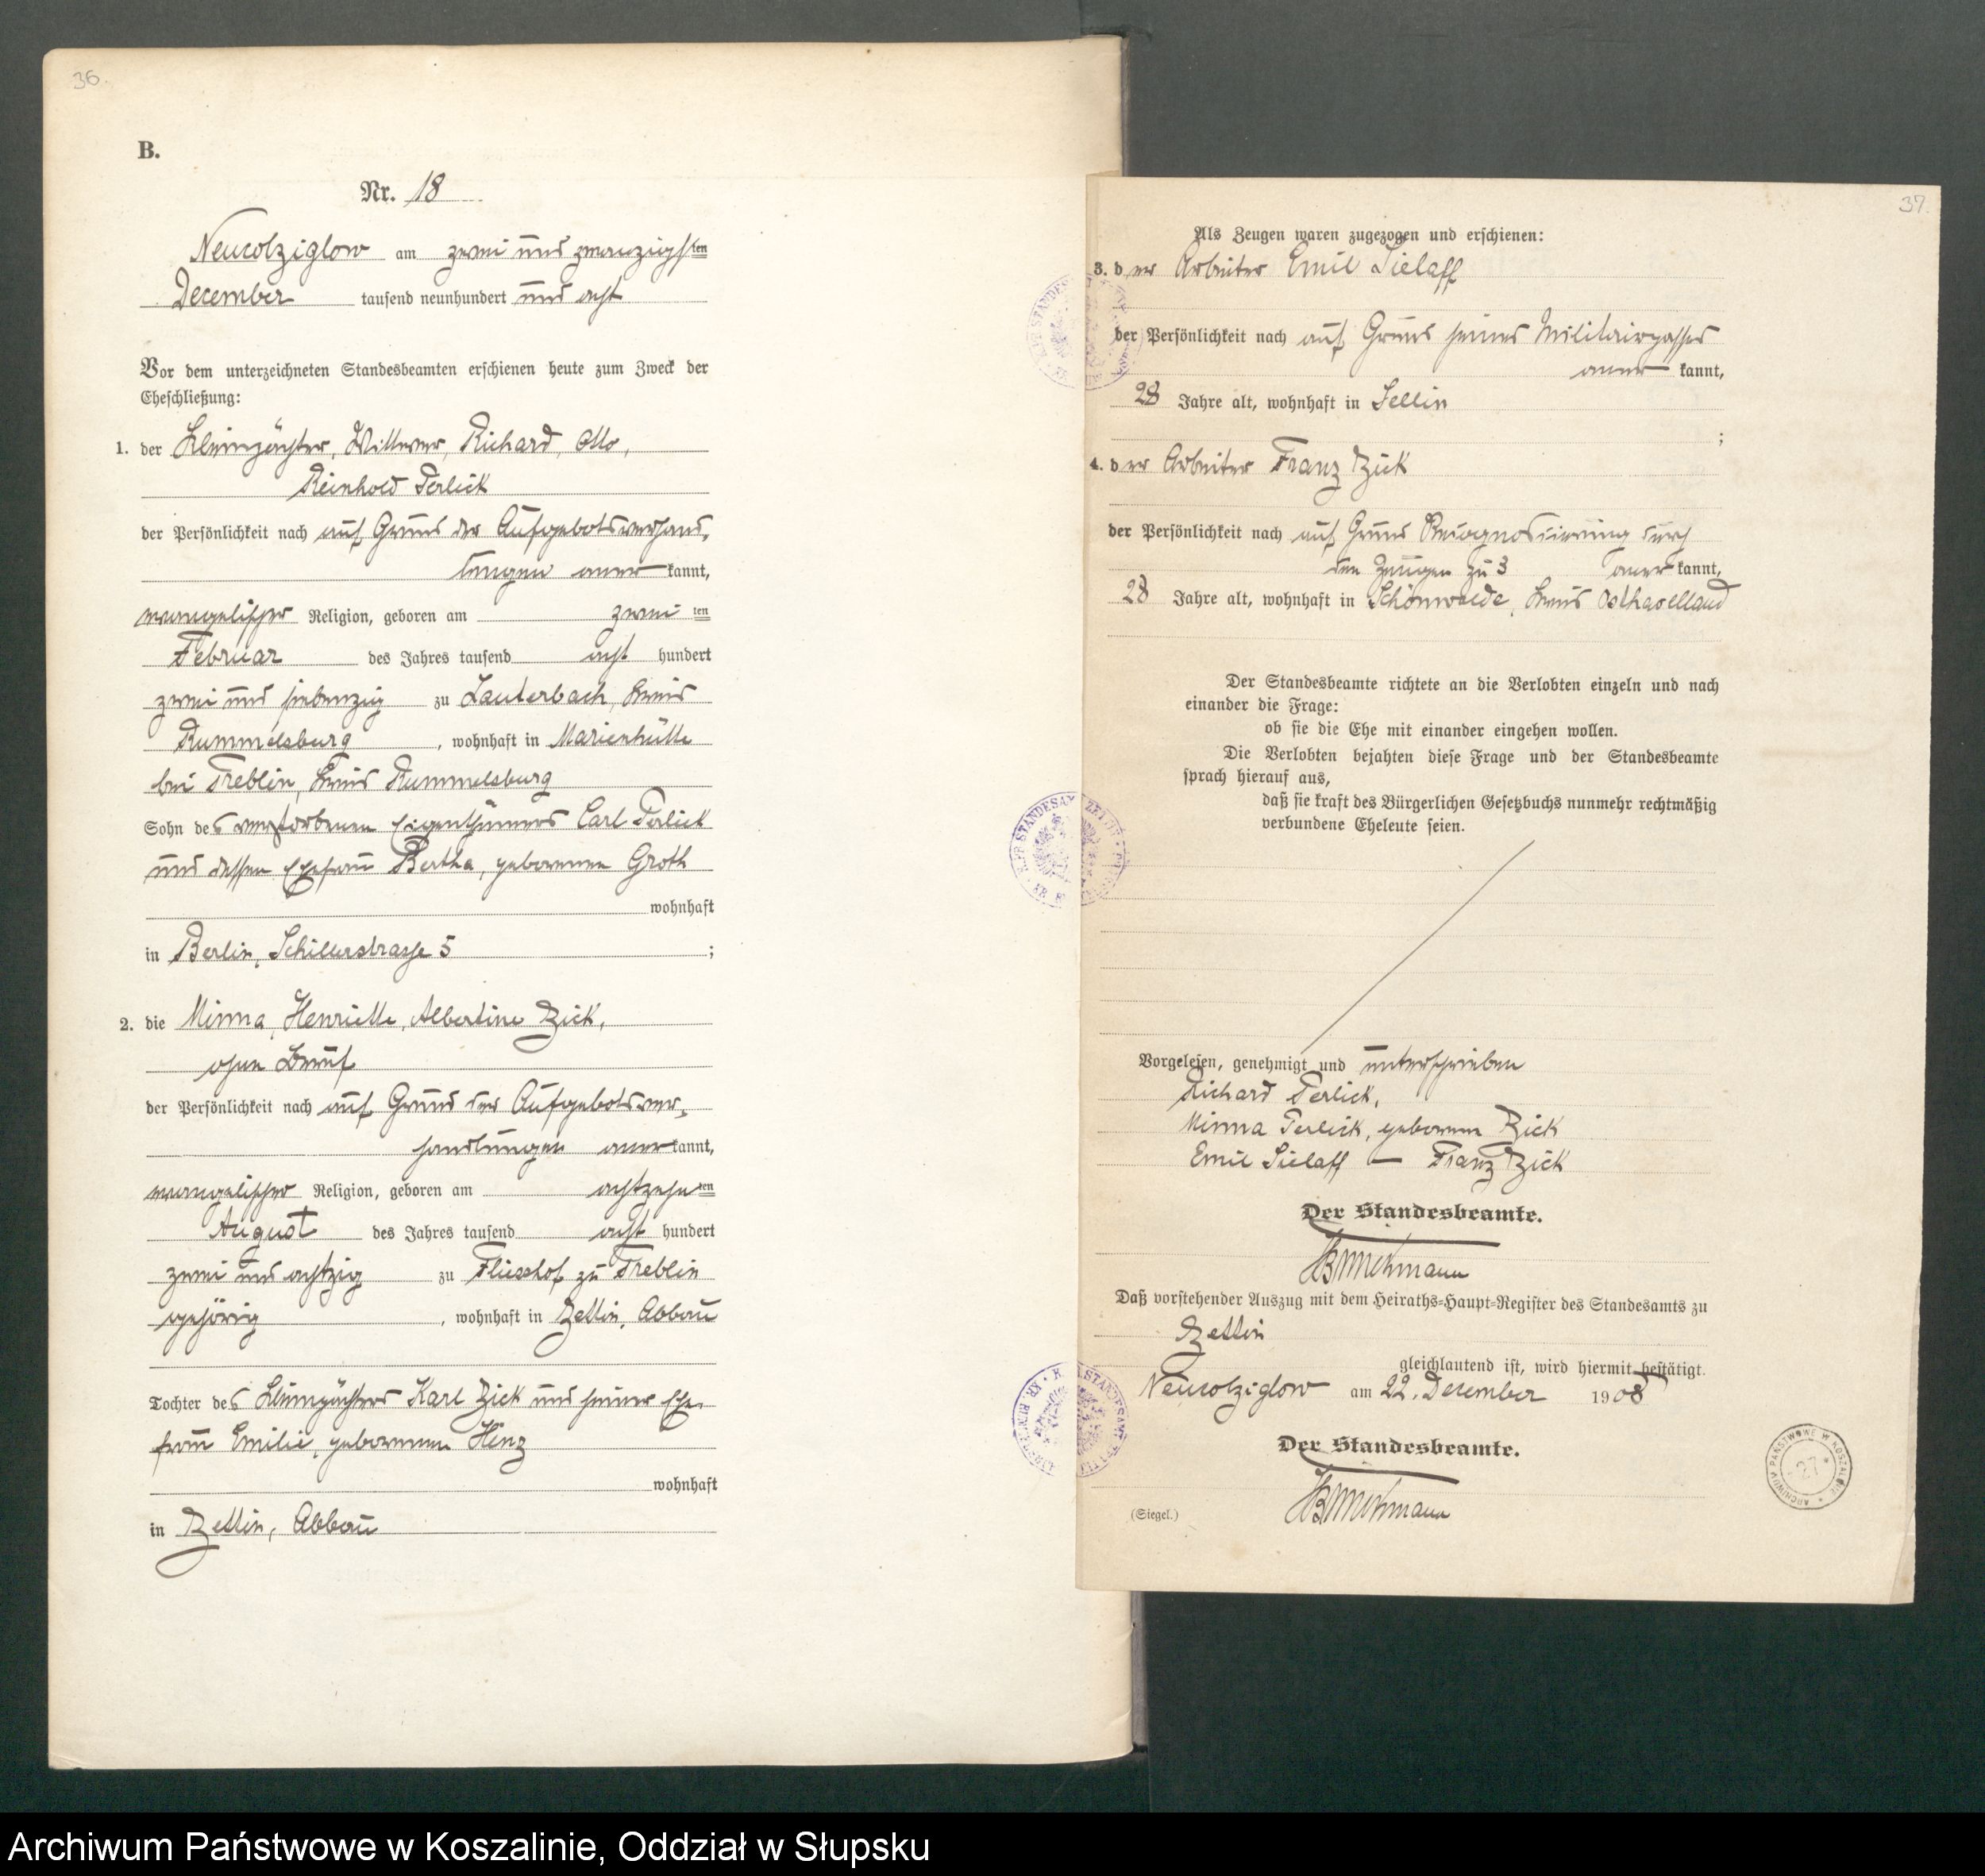 36.
B.
Nr. 18
Neucolziglow am zwei und zwanzigsten
December tausend neunhundert und acht
Vor dem unterzeichneten Standesbeamten erschienen heute zum Zweck der
Eheschließung:
1. der Kleinpächter, Wittwer, Richard, Otto,
Reinhold Perlick
der Persönlichkeit nach auf Grund der Aufgebotsverhand,
lungen aner kannt,
evangelischer Religion, geboren am zwei ten
Februar des Jahres tausend acht hundert
zwei und siebenzig zu Lauterbach, Kreis
Rummelsburg, wohnhaft in Marienhütte
bei Treblin, Kreis Rummelsburg
Sohn des verstorbenen Eigenthümers Carl Perlick
und dessen Ehefrau Bertha, geborenen Groth
wohnhaft
in Berlin, Schillerstrasse 5 ;
2. die Minna, Henriette, Albertine Zick,
ohne Beruf
der Persönlichkeit nach auf Grund der Aufgebotsver,
handlungen aner kannt,
evangelischer Religion, geboren am achtzehn ten
August des Jahres tausend acht hundert
zwei und achtzig zu Fliesshof zu Treblin
gehörig, wohnhaft in Zettin, Abbau
Tochter des Kleinpächters Karl Zick und seiner Ehe-
frau Emilie, geborenen Hinz
wohnhaft
in Zettin, Abbau
37.
Als Zeugen waren zugezogen und erschienen:
3. der Arbeiter Emil Sielaff
der Persönlichkeit nach auf Grund seines Militairpasses
aner kannt,
28 Jahre alt, wohnhaft in Sellin
;
4. der Arbeiter Franz Zick
der Persönlichkeit nach auf Grund Recognoscierung durch
den Zeugen zu 3 aner kannt,
28 Jahre alt, wohnhaft in Schönwalde, Kreis Osthavelland
Der Standesbeamte richtete an die Verlobten einzeln und nach
einander die Frage:
ob sie die Ehe mit einander eingehen wollen.
Die Verlobten bejahten diese Frage und der Standesbeamte
sprach hierauf aus,
daß sie kraft des Bürgerlichen Gesetzbuchs nunmehr rechtmäßig
verbundene Eheleute seien.
Vorgelesen, genehmigt und unterschrieben
Richard Perlick,
Minna Perlick, geborene Zick
Emil Sielaff — Franz Zick
Der Standesbeamte.
Daß vorstehender Auszug mit dem Heiraths-Haupt-Register des Standesamts zu
Zettin
gleichlautend ist, wird hiermit bestätigt.
Neucolziglow am 22. December 1908
Der Standesbeamte.
(Siegel.)
ARCHIWUM PAŃSTWOWE W KOSZALINIE
27
Archiwum Państwowe w Koszalinie, Oddział w Słupsku